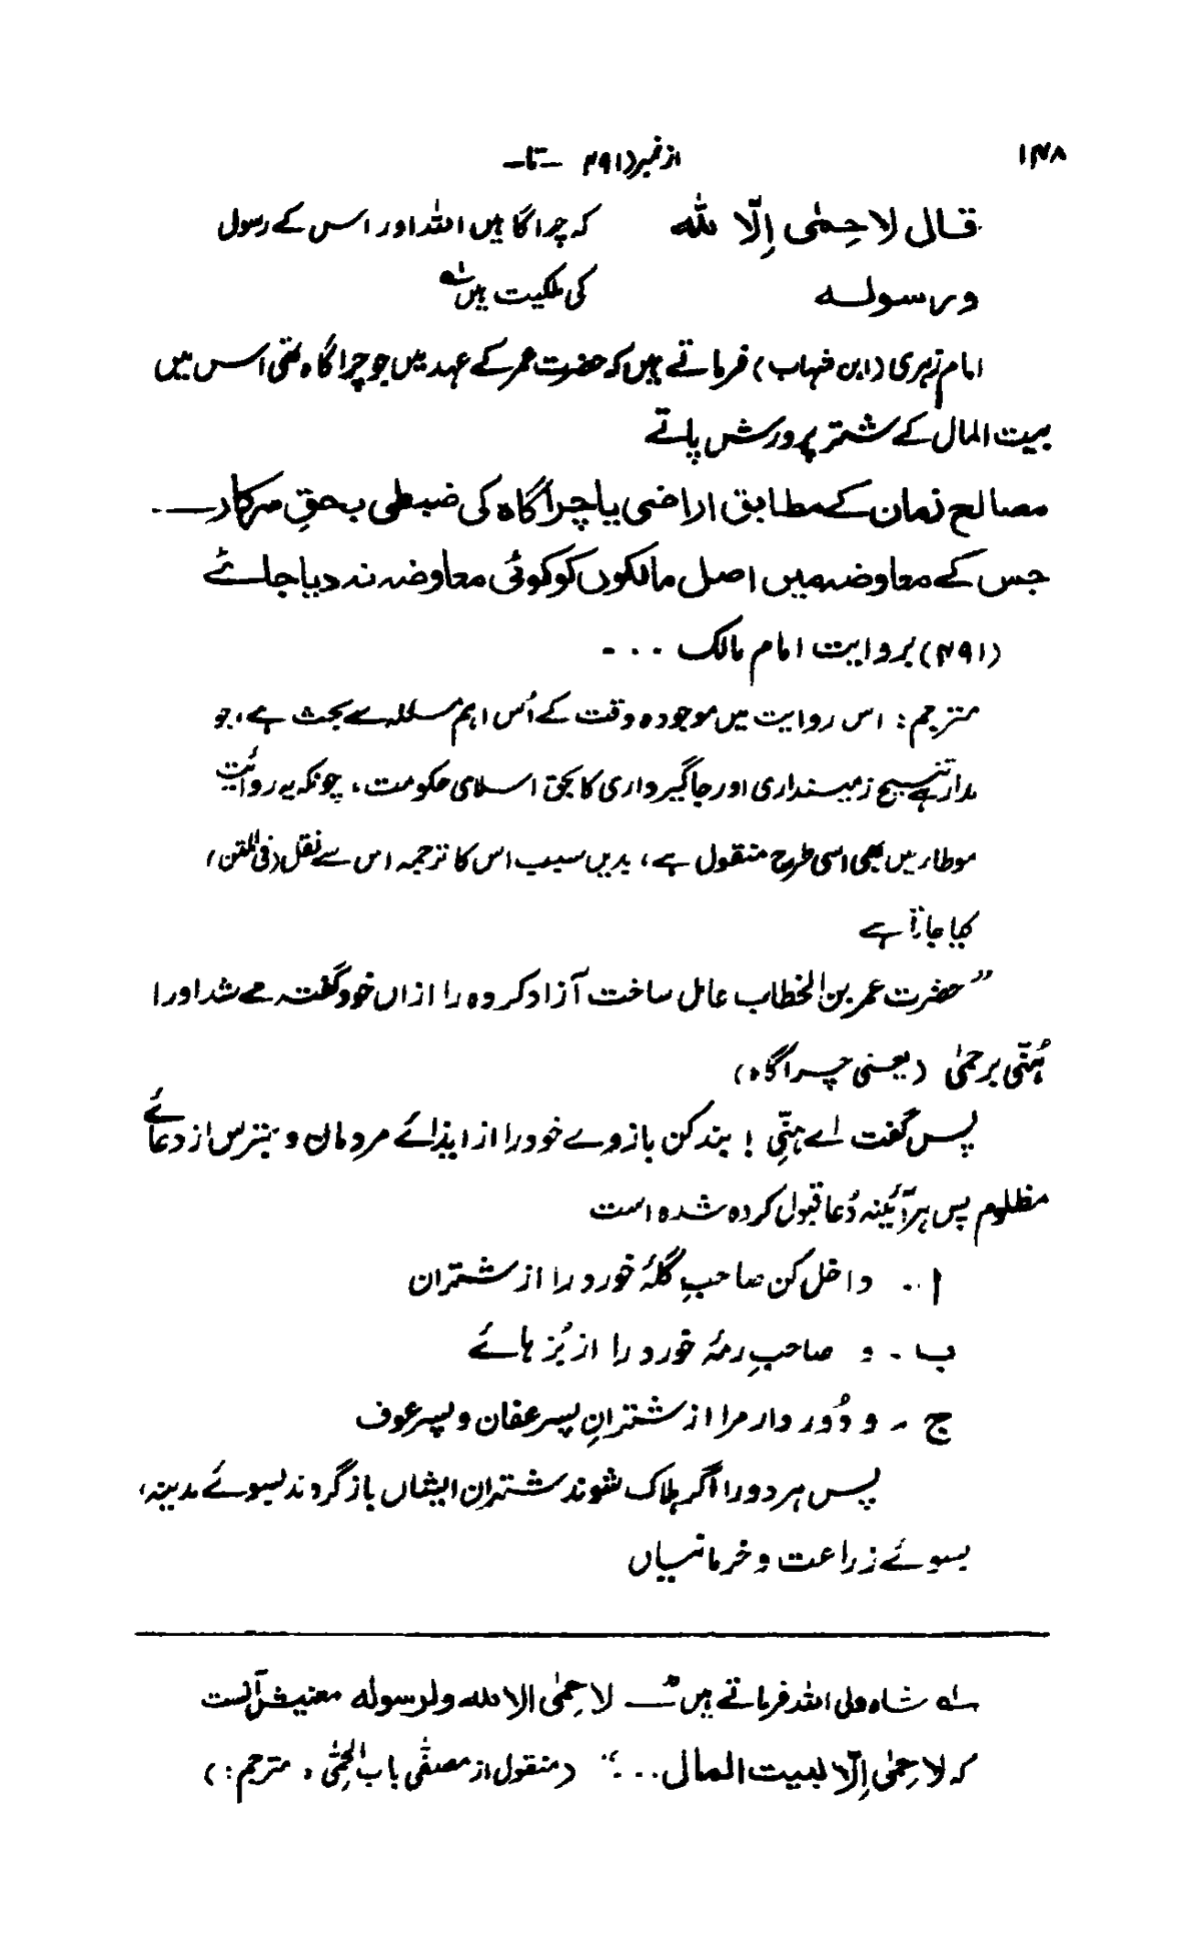 ۱۴۸
از نمبر (۴۹۱ – تا –
قال لا حِمٰی إلّا لله کہ چراگاہیں اللہ اور اس کے رسول
ورسوله کی ملکیت ہیں لہ
امام زہری (ابن شہاب) فرماتے ہیں کہ حضرت عمر کے عہد میں جو چراگاہ تھی اس میں
بیت المال کے شتر پرورش پاتے
مصالح زمان کے مطابق اراضی یا چراگاہ کی ضبطی بحقِ سرکار —.
جس کے معاوضہ میں اصل مالکوں کو کوئی معاوضہ نہ دیا جائے
(۴۹۱) بروایت امام مالک ...-
مترجم: اس روایت میں موجودہ وقت کے اُس اہم مسئلہ سے بحث ہے، جو
مدار ہے تنسیخ زمینداری اور جاگیرداری کا بحق اسلامی حکومت، چونکہ یہ روائت
موطا میں بھی اسی طرح منقول ہے، بدیں سبب اس کا ترجمہ اس سے نقل (فی المتن)
کیا جاتا ہے
”حضرت عمر بن الخطاب عامل ساخت آزاد کردہ را ازاں خود گفتہ مے شد اورا
ہُنّی بر حمٰی (یعنی چراگاہ)
پس گفت اے ہنّیِ! بند کن بازوے خود را از ایذائے مردمان و بترس از دعائے
مظلوم پس ہر آئینہ دُعا قبول کردہ شدہ است
ا.. داخل کن صاحبِ گلۂ خورد را از شتران
ب - و صاحبِ رمۂ خورد را از بُز ہائے
ج - و دُور دار مرا از شترانِ پسر عفان و پسر عوف
پس ہر دو را اگر ہلاک شوند شتران ایشاں باز گردند بسوئے مدینہ،
بسوئے زراعت و خرمانیساں
لہ شاہ ولی اللہ فرماتے ہیں — لا حِمٰی الا لله ولرسوله معنیش آنست
کہ لا حِمٰی إلّا لبیت المال...“ (منقول از مصفّٰی باب الحِمٰی، مترجم:)